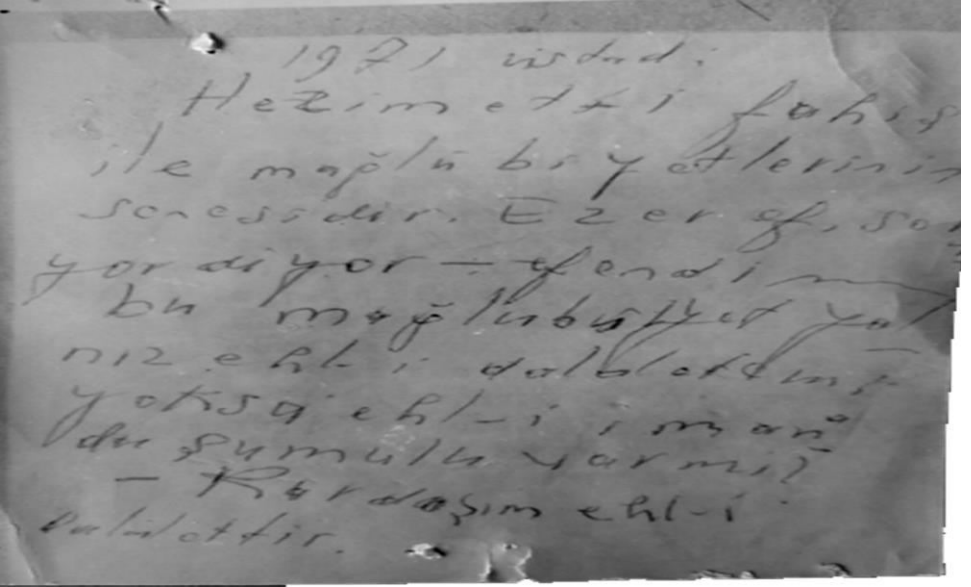 1971 üstad:
Hezimet-i fahiş
ile mağlûbiyetlerinin
senesidir. Ezer ef. sor
yor diyor — efendim
bu mağlubiyet yal
nız ehl-i dalalete mi
yoksa ehl-i imana
da şumulu varmı?
— Kardaşım ehl-i
dalalettir.